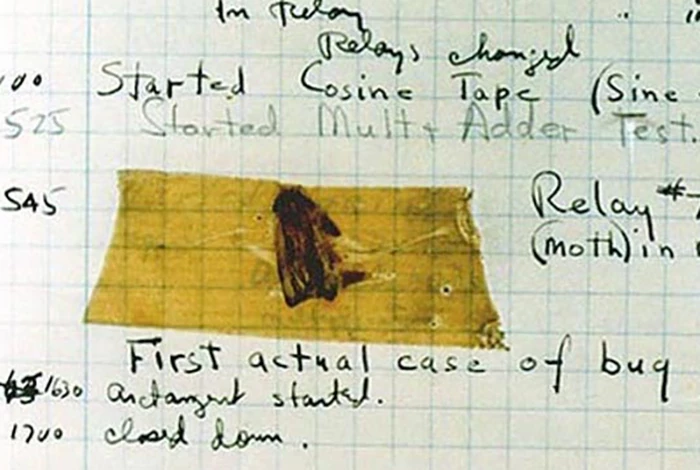 In Relay
Relays changed
100 Started Cosine Tape (Sine
525 Started Mult+ Adder Test.
545 Relay #
(moth) in
First actual case of bug
1630 arctangent started.
1700 closed down.